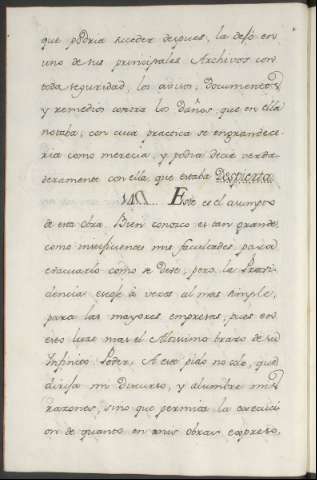 que podria suceder despues, la dexó en
uno de sus principales Archivos con
toda seguridad, los avisos, Documentos
y remedios contra los Daños, que en ella
notaba, con cuia practica se engrandece-
ria como merecia, y podia decir verda-
deramente con ella, que estaba Despierta.
Este es el asumpto
de esta Obra. Bien conozco es tan grande,
como insuficientes mis facultades para
evacuarlo como se debe, pero la Provi-
dencia escoge á veces al mas simple,
para las mayores empresas, pues en
esto luze mas el Altissimo brazo de su
Infinito Poder. A este pido no solo, que
dirija mi Discurso, y alumbre mis
razones, sino que permita la execuci-
on de quanto en mis Obras expreso,